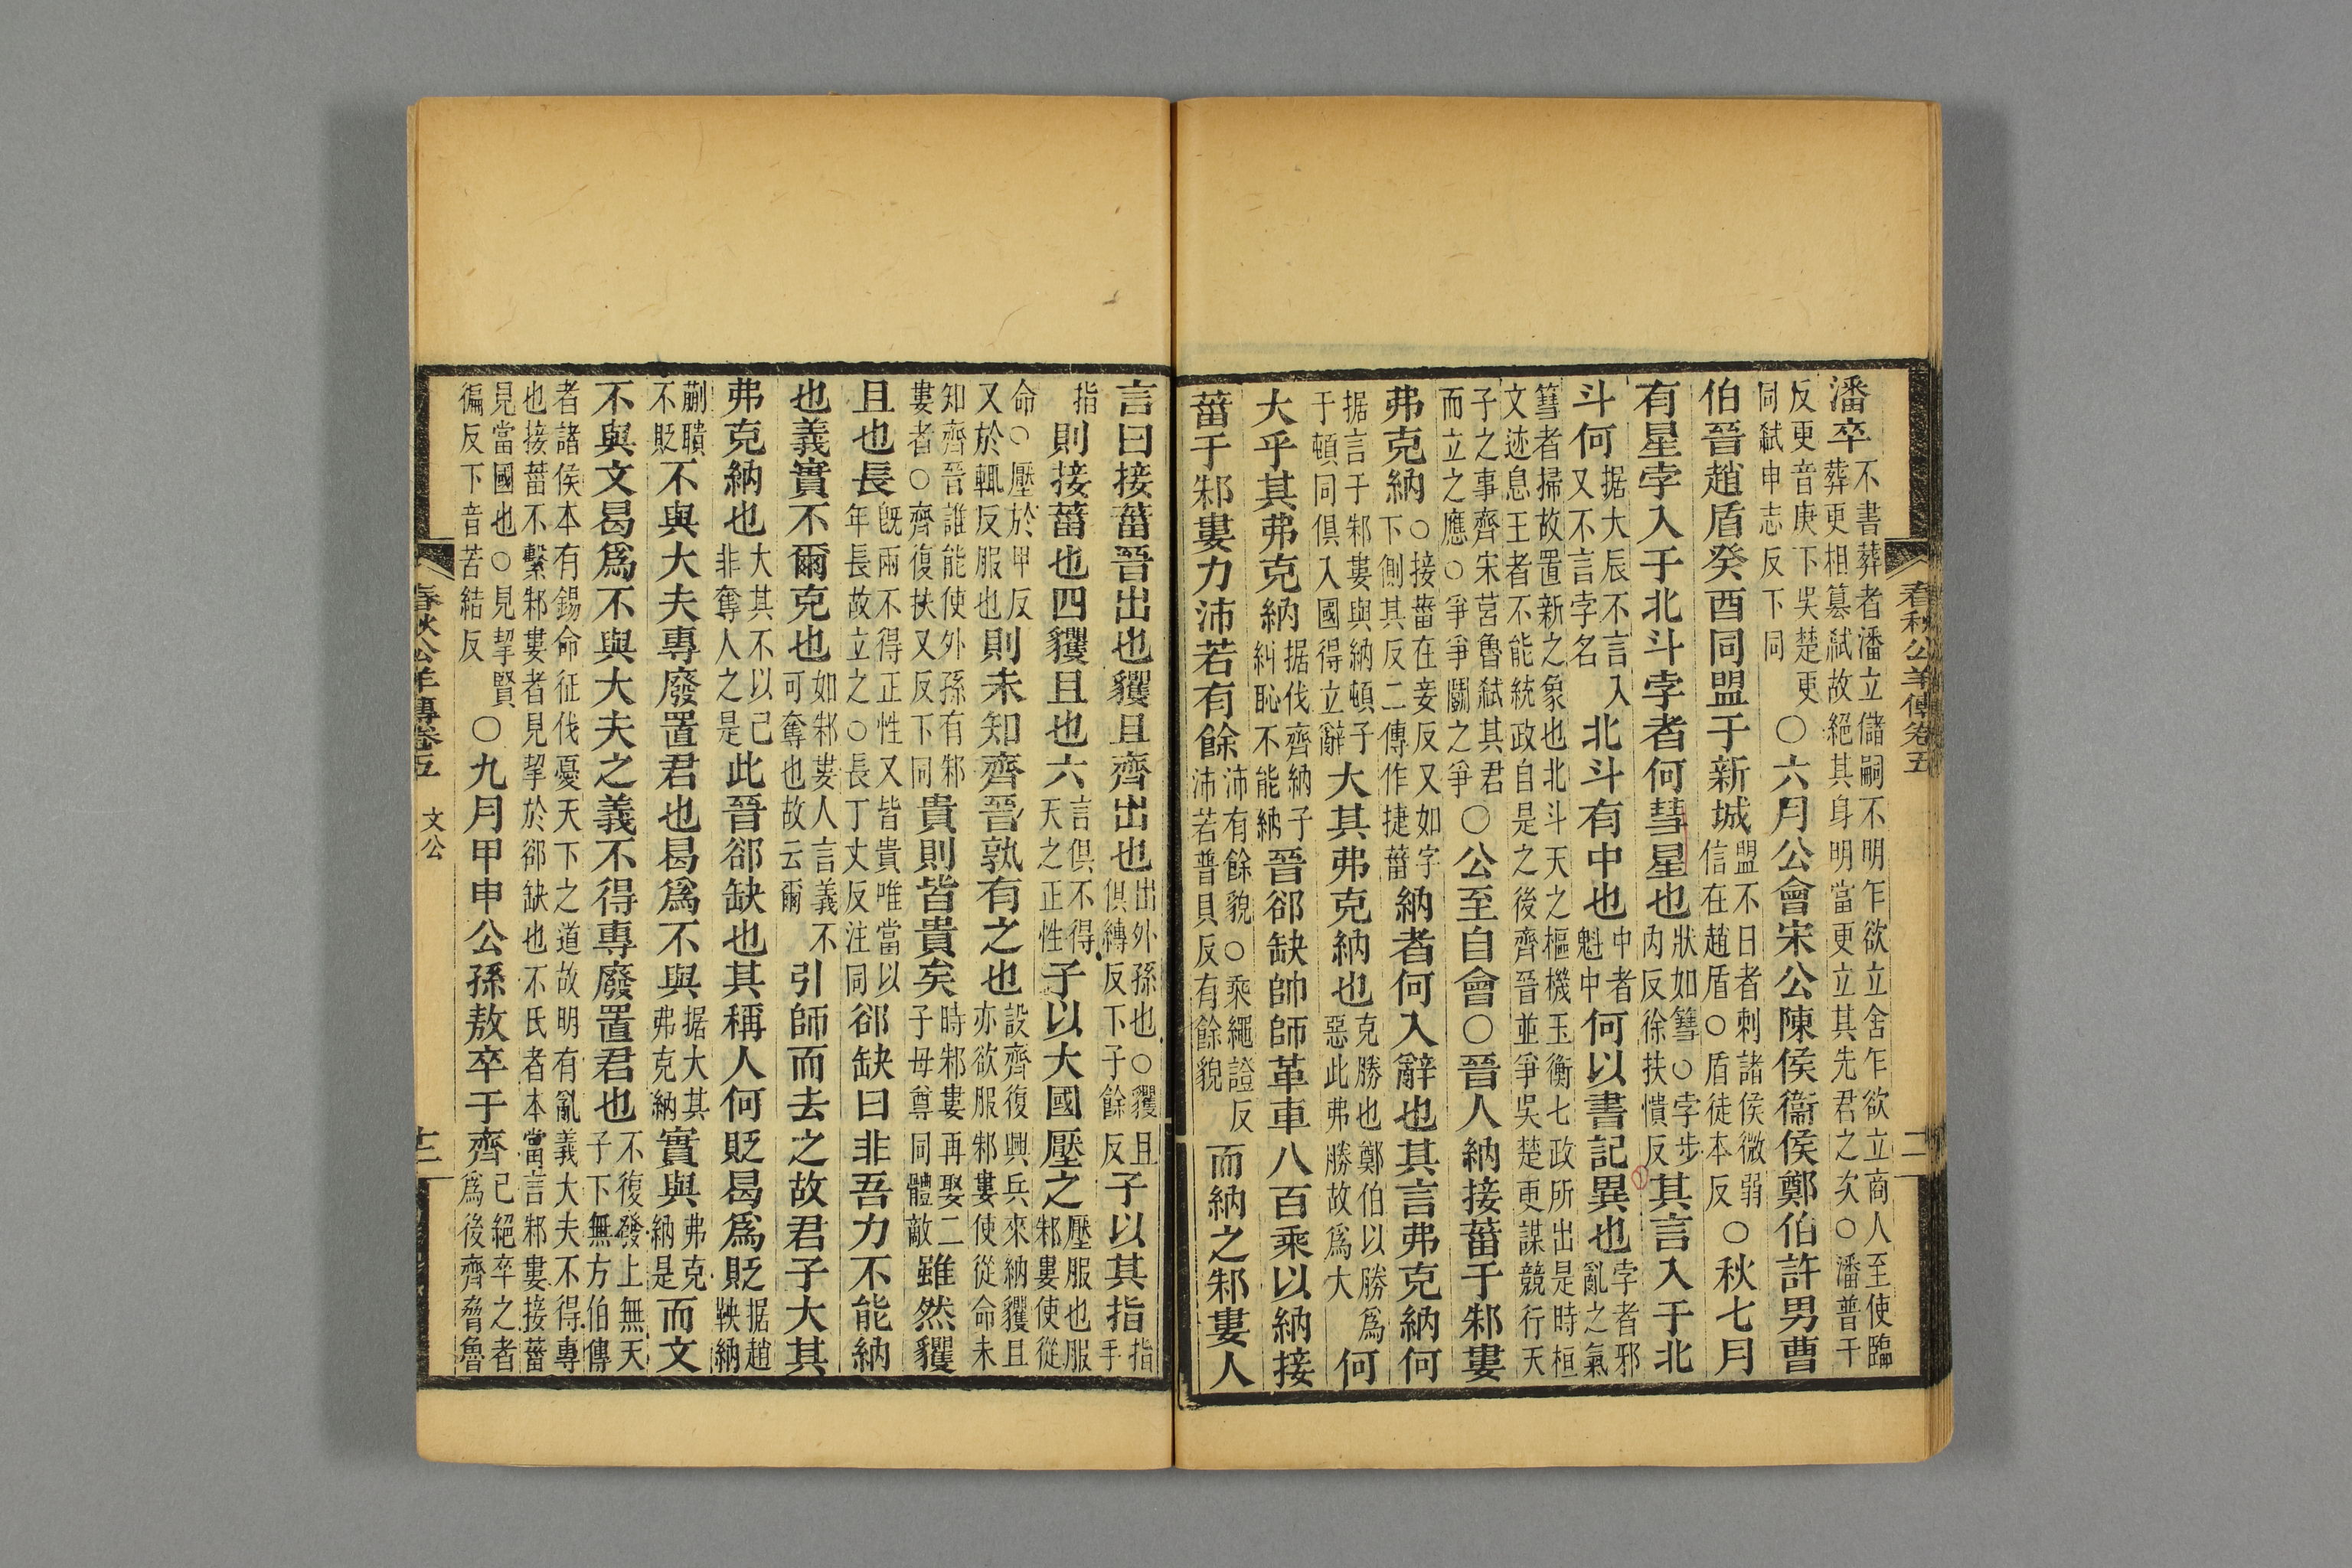 潘卒不書葬者潘立儲嗣不明乍欲立舍乍欲立商人至使臨葬更相篡弒故絕其身明當更立其先君之次○潘普干
反更音庚下吳楚更同弒申志反下同○六月公會宋公陳侯衞侯鄭伯許男曹
伯晉趙盾癸酉同盟于新城盟不日者刺諸侯微弱信在趙盾○盾徒本反○秋七月
有星孛入于北斗孛者何彗星也狀如篲○孛步內反徐扶憒反其言入于北
斗何据大辰不言入又不言孛名北斗有中也中者魁中何以書記異也孛者邪亂之氣
篲者掃故置新之象也北斗天之樞機玉衡七政所出是時桓文迹息王者不能統政自是之後齊晉並爭吳楚更謀競行天
子之事齊宋莒魯弒其君而立之應○爭爭鬭之爭○公至自會○晉人納接菑于邾婁
弗克納○接菑在妾反又如字下側其反二傳作捷菑納者何入辭也其言弗克納何
据言于邾婁與納頓子于頓同俱入國得立辭大其弗克納也克勝也鄭伯以勝爲惡此弗勝故爲大何
大乎其弗克納据伐齊納子糾恥不能納晉郤缺帥師革車八百乘以納接
菑于邾婁力沛若有餘沛有餘貌○乘繩證反沛若普貝反有餘貌而納之邾婁人
春秋公羊傳卷五
言曰接菑晉出也貜且齊出也出外孫也○貜且俱縛反下子餘反子以其指指手
指則接菑也四貜且也六言俱不得天之正性子以大國壓之壓服也服邾婁使從
命○壓於甲反又於輒反服也則未知齊晉孰有之也設齊復興兵來納貜且亦欲服邾婁使從命未
知齊晉誰能使外孫有邾婁者○齊復扶又反下同貴則皆貴矣時邾婁再娶二子母尊同體敵雖然貜
且也長旣兩不得正性又皆貴唯當以年長故立之○長丁丈反注同郤缺曰非吾力不能納
也義實不爾克也如邾婁人言義不可奪也故云爾引師而去之故君子大其
弗克納也大其不以己非奪人之是此晉郤缺也其稱人何貶曷爲貶据趙鞅納
蒯聵不貶不與大夫專廢置君也曷爲不與据大其弗克納實與弗克納是而文
不與文曷爲不與大夫之義不得專廢置君也不復發上無天子下無方伯傳
者諸侯本有錫命征伐憂天下之道故明有亂義大夫不得專也接菑不繫邾婁者見挈於郤缺也不氏者本當言邾婁接菑
見當國也○見挈賢徧反下音苦結反○九月甲申公孫敖卒于齊已絕卒之者爲後齊脅魯
春秋公羊傳卷五 文公 十二